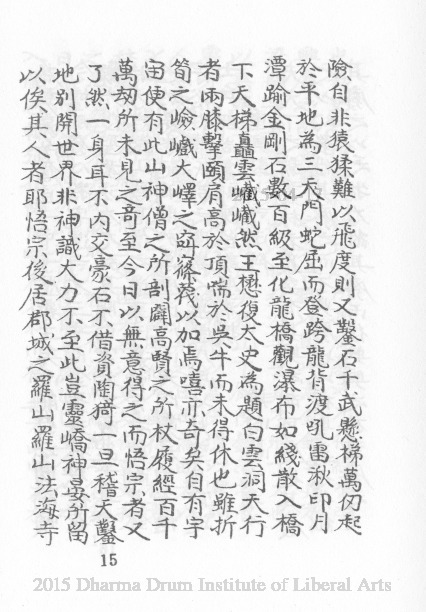 險自非猿猱難以飛度則又鑿石千武懸梯萬仞起
於平地為三天門蛇屈而登跨龍背渡吼雷湫印月
潭踰金剛石數百級至化龍橋觀瀑布如綫散入橋
下天梯矗雲巇巇然王懋復太史為題白雲洞天行
者兩膝擊頤肩高於頂喘於吳牛而未得休也雖折
筍之嶮巇大嶧之𥥆窱蔑以加焉嘻亦奇矣自有宇
宙便有此山神僧之所剖闢高賢之所杖履經百千
萬劫所未見之奇至今日以無意得之而悟宗者又
了然一身耳不內交豪右不借資陶猗一旦稽天鑿
地別開世界非神識大力不至此豈靈嶠神晏所留
以俟其人者耶悟宗後居郡城之羅山羅山法海寺
15
2015 Dharma Drum Institute of Liberal Arts